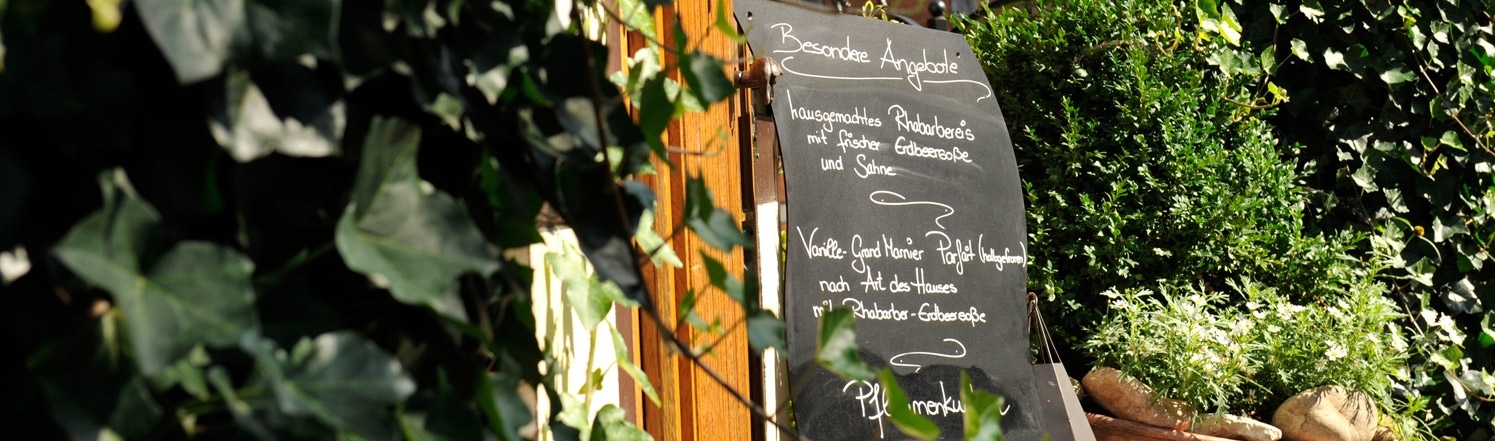 Besondere Angebote
hausgemachtes Rhabarbereis
mit frischer Erdbeersoße
und Sahne
Vanille-Grand Marnier Parfait (halbgefroren)
nach Art des Hauses
mit Rhabarber-Erdbeersoße
Pflaumenkuchen